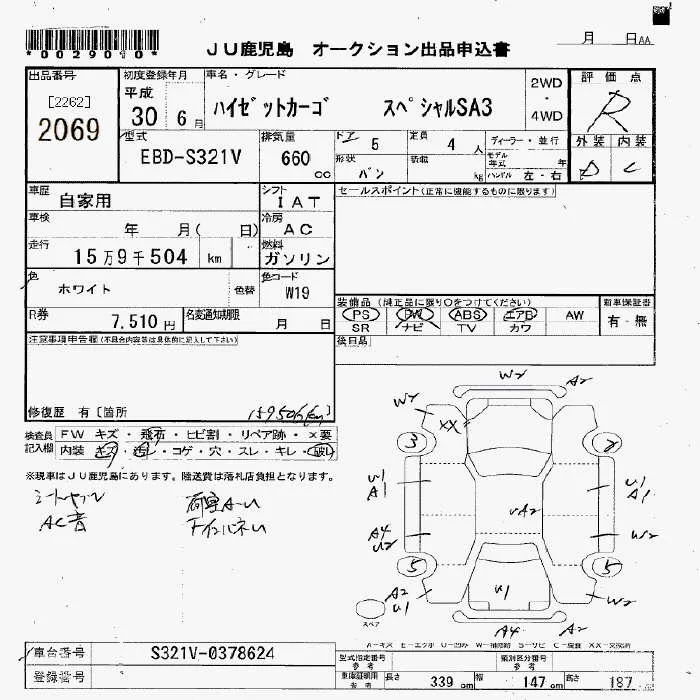 *0029010*
JU鹿児島 オークション出品申込書
月 日AA
出品番号 初度登録年月 車名・グレード 2WD・4WD 評価点
[2262]
2069
平成
30 6月
ハイゼットカーゴ スペシャルSA3
R
型式
EBD-S321V
排気量
660 cc
ドア 5
定員 4 人
ディーラー・並行
形状 バン
積載 kg
モデル年式 年
ハンドル 左・右
外装 内装
D C
車歴 自家用
シフト IAT
セールスポイント(正常に機能するものに限ります)
車検 年 月( 日)
冷房 AC
走行 15万9千504 km
燃料 ガソリン
色 ホワイト 色替
色コード W19
装備品(純正品に限り○をつけてください) 新車保証書
R券 7,510円
名変通知期限 月 日
PS PW ABS エアB AW 有・無
SR ナビ TV カワ
注意事項申告欄(不具合内容等は具体的に記入して下さい)
後日品
修復歴 有[箇所 159506km]
検査員記入欄
FW キズ・飛石・ヒビ割・リペア跡・×要
内装 キズ・汚レ・コゲ・穴・スレ・キレ・破レ
※現車はJU鹿児島にあります。陸送費は落札店負担となります。
AC音
荷室A-U
W2 A2
W2
XX
3 2
U1 A1
U1 A1
A2
A4 U2
W2
5 5
U1
A2 U1
W2
スペア
A4 A2
A-キズ E-エクボ U-凹み W-補修跡 S-サビ C-腐食 XX-交換済
車台番号 S321V-0378624
登録番号
型式指定番号 参考
類別区分番号 参考
車庫証明用参考
長さ 339 cm
幅 147 cm
高さ 187